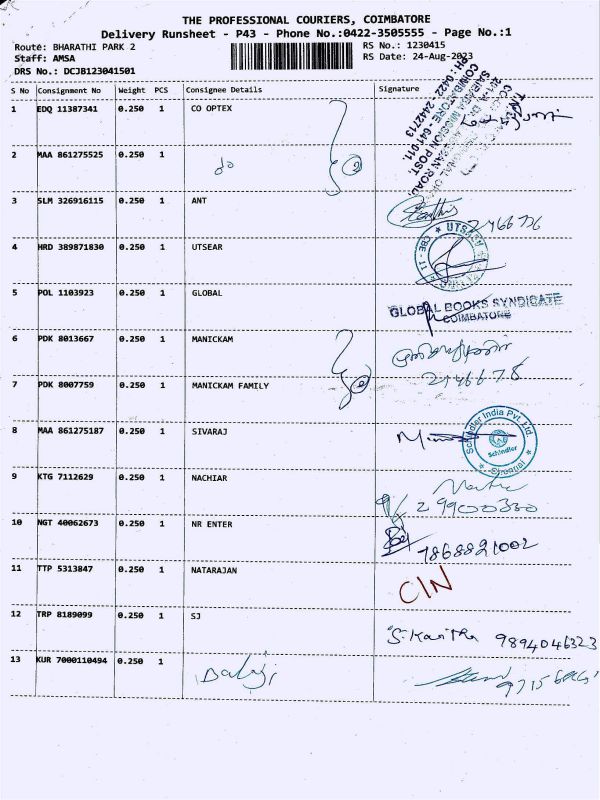 THE PROFESSIONAL COURIERS, COIMBATORE
Delivery Runsheet - P43 - Phone No.:0422-3505555 - Page No.:1
Route: BHARATHI PARK 2 RS No.: 1230415
Staff: AMSA RS Date: 24-Aug-2023
DRS No.: DCJB123041501
S No Consignment No Weight PCS Consignee Details Signature
1 EDQ 11387341 0.250 1 CO OPTEX
SAIBABA MISSION POST,
COIMBATORE - 641 011.
PH : 0422 - 2442713
2 MAA 861275525 0.250 1 do 2
3 SLM 326916115 0.250 1 ANT
2466776
4 HRD 389871830 0.250 1 UTSEAR
UTSEAR CBE - 11
5 POL 1103923 0.250 1 GLOBAL
GLOBAL BOOKS SYNDICATE
COIMBATORE
6 PDK 8013667 0.250 1 MANICKAM
7 PDK 8007759 0.250 1 MANICKAM FAMILY 2 2146678
8 MAA 861275187 0.250 1 SIVARAJ
Schindler India Pvt. Ltd.
Schindler
Chennai
9 KTG 7112629 0.250 1 NACHIAR
9/ 2 9900330
10 NGT 40062673 0.250 1 NR ENTER
7868821002
11 TTP 5313847 0.250 1 NATARAJAN
C/N
12 TRP 8189099 0.250 1 SJ
S. Kavitha 9894046323
13 KUR 7000110494 0.250 1 Balaji